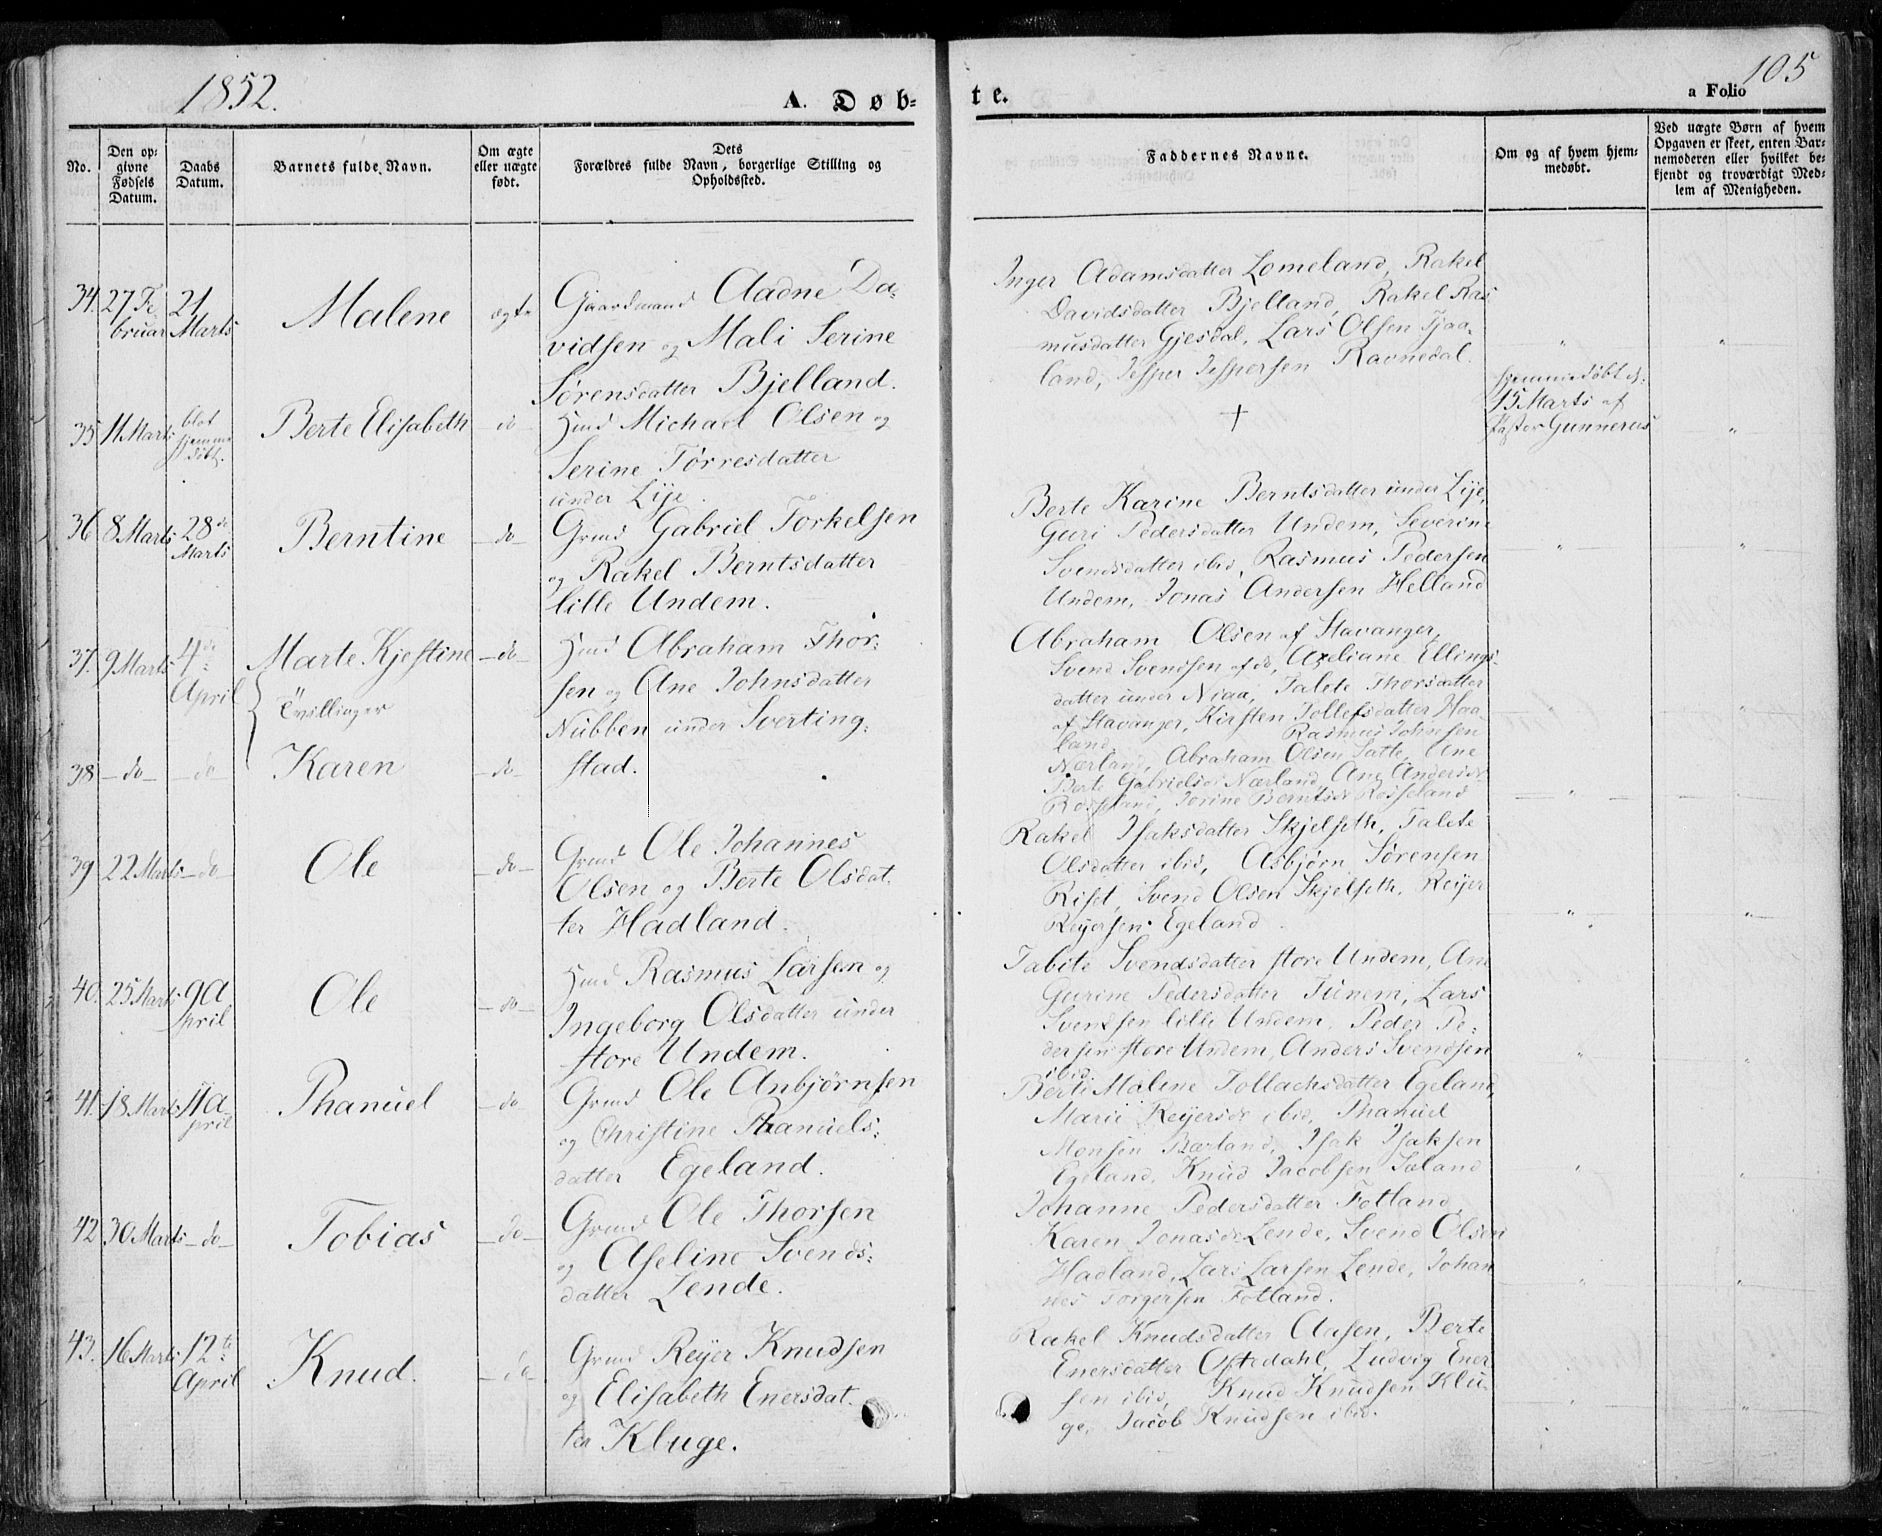 1852.
A. Døb-
te.
a Folio 105
No.
Den op-
givne
Fødsels
Datum.
Daabs
Datum.
Barnets fulde Navn.
Om ægte
eller uægte
født.
Dets
Forældres fulde Navn, borgerlige Stilling og
Opholdssted.
Faddernes Navne.
Om og af hvem hjem-
medøbt.
Ved uægte Børn af hvem
Opgaven er skeet, enten Bar-
nemoderen eller hvilket be-
kjendt og troværdigt Med-
lem af Menigheden.
34. 27 Fe-
bruar
21
Marts
Malene
ægte
Gaardmand Aadne Da-
vidsen og Mali Serine
Sørensdatter Bjelland.
Inger Adamsdatter Lomeland, Rakel
Davidsdatter Bjelland, Rakel Ras
musdatter Gjesdal, Lars Olsen Tjaa-
land, Jesper Jespersen Ravnedal.
35 11 Marts
blot
hjemme
døbt.
Berte Elisabeth
do
Huusm. Michael Olsen og
Serine Tørresdatter
under Lije.
+
hjemmedøbt d:
15 Marts af
Pastor Gunnerus
36 8 Marts
28de
Marts
Berntine
do
Grmd Gabriel Torkelsen
og Rakel Berntsdatter
lille Undem.
Berte Karine Berntsdatter under Lije,
Guri Pedersdatter Undem, Severine
Svendsdatter ibid, Rasmus Pedersen
Undem, Jonas Andersen Helland
37. 9 Marts
4de
April
Marte Kjestine
Tvillinger
do
Hmd Abraham Thor-
sen og Ane Johnsdatter
Nubben under Sverting-
stad.
Abraham Olsen af Stavanger,
Svend Svendsen af do, Axeliane Ellings-
datter under Niaa, Talete Thorsdatter
af Stavanger, Kirsten Tollefsdatter Haa-
land,
38 do do
Karen
do
Rasmus Johnsen
Nærland, Abraham Olsen Latte, Ane
Berte Gabrielsdr Nærland, Ane Andersdr
Rosseland, Serine Berntsdr Rosseland
39 22 Marts do
Ole
do
Grmd Ole Johannes
Olsen og Berte Olsdat-
ter Hadland.
Rakel Isaksdatter Skjelseth, Talete
Olsdatter ibid, Asbjørn Sørensen
Riset, Svend Olsen Skjelseth, Reijer
Reijersen Egeland.
40. 25 Marts
9 A
pril
Ole
do
Hmd Rasmus Larsen og
Ingeborg Olsdatter under
store Undem.
Tabite Svendsdatter store Undem, Ane
Gurine Pedersdatter Tunem, Lars
Svendsen lille Undem, Peder Pe-
dersen store Undem, Anders Svendsen
ibid.
41. 18 Marts
11 A
pril
Phanuel
do
Grmd Ole Anbjørnsen
og Christine Phanuels-
datter Egeland.
Berte Malene Tollachsdatter Egeland,
Marie Reijersdr ibid, Phanuel
Monsen Bærland, Isak Isaksen
Egeland, Knud Jacobsen Tæland
42 30 Marts do
Tobias
do
Grmd Ole Thorsen
og Aseline Svends-
datter Lende.
Johanne Pedersdatter Fotland,
Karen Jonasdr Lende, Svend Olsen
Hadland, Lars Larsen Lende, Johan
nes Torgersen Fotland.
43. 16 Marts
12te
April
Knud.
do
Grmd Reijer Knudsen
og Elisabeth Enersdat-
ter Kluge.
Rakel Knudsdatter Aasen, Berte
Enersdatter Oftedahl, Ludvig Ener
sen ibid, Knud Knudsen Klu-
ge, Jacob Knudsen ibid.